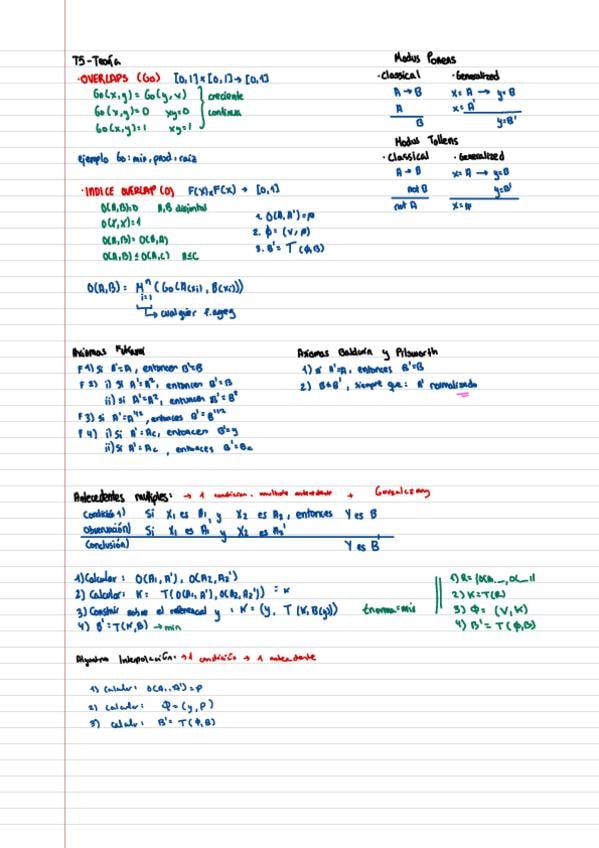 T5-Teoría
·OVERLAPS (Go) [0,1]x[0,1]→[0,1]
Go(x,y)=Go(y,x)
Go(x,y)=0 xy=0
Go(x,y)=1 xy=1
creciente
continua
ejemplo Go: min, prod, raiz
·INDICE OVERLAP (O) F(X)xF(X) → [0,1]
O(A,B)=0 A,B disjuntos
O(A,B)=O(B,A)
O(A,B)≤O(A,C) B≤C
1. O(A,A')=ρ
3. B'=T(φ,B)
O(A,B)= M (Go(A(xi), B(xi)))
n
i=1
↳ cualquier f.agreg
Modus Ponens
·Classical ·Generalized
A → B x=A → y=B
A x=A'
B y=B'
Modus Tollens
·Classical ·Generalized
A → B x=A → y=B
not B y=B'
not A
Axiomas Fukami
F1) si A'=A, entonces B'=B
F2) i) Si A'=A², entonces B'=B
ii) si A'=A², entonces B'=B²
F3) Si A'=A^1/2, entonces B'=B^1/2
F4) i) Si A'=Ac, entonces B'=y
ii) Si A'=Ac, entonces B'=Bc
Axiomas Baldwin y Pilsworth
1) si A'=A, entonces B'=B
2) B≤B', siempre que: A' normalizado
Antecedentes multiples: → 1 condicion, multiple antecedente +
Condición 1) Si X1 es A1 y X2 es A2, entonces Y es B
Observación) Si X1 es A1' y X2 es A2'
Conclusión) Y es B'
1) Calcular: O(A1, A1'), O(A2, A2')
2) Calcular: K= T(O(A1,A1'), O(A2,A2')) = K
3) Construir sobre el referencial y: K=(y, T(K,B(y))) tnorma=min
4) B'=T(K,B) → min
2) K=T(R)
3) φ=(Y,K)
4) B'=T(φ,B)
Algoritmo Interpolación: → 1 condición → 1 antecedente
1) calcular: O(A,A')=ρ
2) calcular: φ=(y,ρ)
3) calcular: B'=T(φ,B)